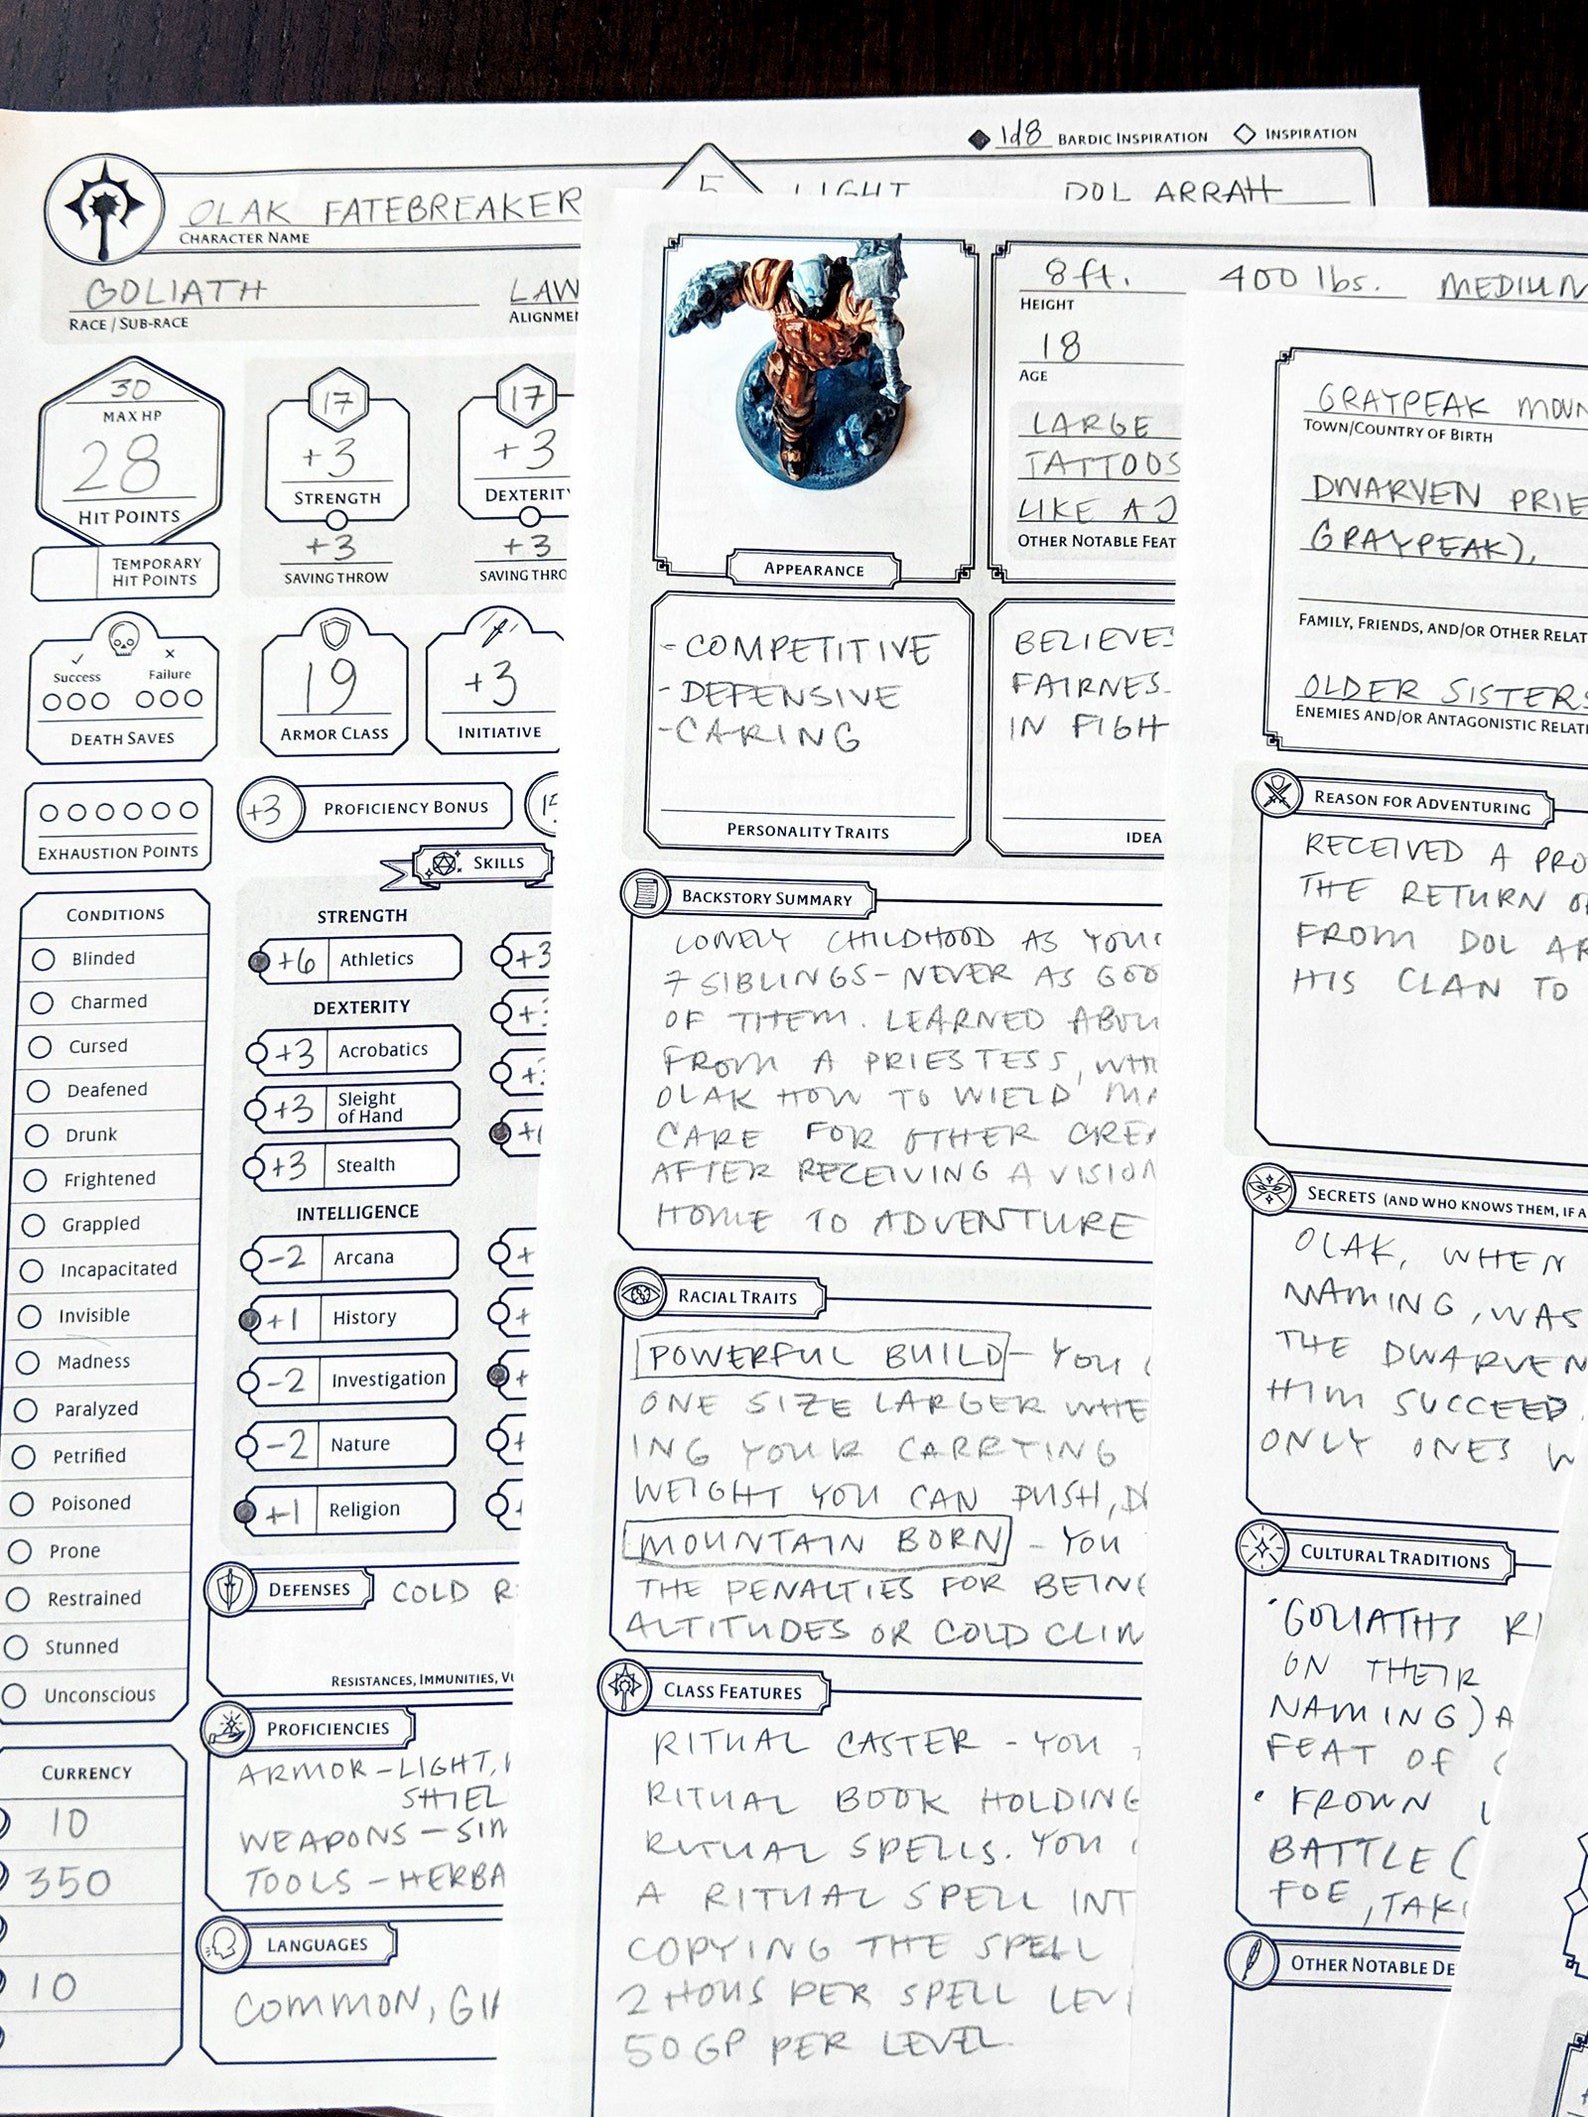 1d8 BARDIC INSPIRATION INSPIRATION
OLAK FATEBREAKER
CHARACTER NAME
5 LIGHT DOL ARRAH
GOLIATH
RACE / SUB-RACE
LAW
ALIGNME
30
MAX HP
28
HIT POINTS
TEMPORARY
HIT POINTS
17
+3
STRENGTH
+3
SAVING THROW
17
+3
DEXTERITY
+3
SAVING THRO
Success Failure
DEATH SAVES
19
ARMOR CLASS
+3
INITIATIVE
EXHAUSTION POINTS
+3 PROFICIENCY BONUS
SKILLS
CONDITIONS
Blinded
Charmed
Cursed
Deafened
Drunk
Frightened
Grappled
Incapacitated
Invisible
Madness
Paralyzed
Petrified
Poisoned
Prone
Restrained
Stunned
Unconscious
STRENGTH
+6 Athletics
+3
DEXTERITY
+3 Acrobatics
+3 Sleight
of Hand
+3 Stealth
INTELLIGENCE
-2 Arcana
+1 History
-2 Investigation
-2 Nature
+1 Religion
DEFENSES COLD R
RESISTANCES, IMMUNITIES, VU
PROFICIENCIES
ARMOR-LIGHT,
SHIEL
WEAPONS-SIM
TOOLS-HERBA
LANGUAGES
COMMON, GI
CURRENCY
10
350
10
APPEARANCE
8 ft. 400 lbs. MEDIUM
HEIGHT
18
AGE
LARGE
TATTOOS
LIKE A
OTHER NOTABLE FEAT
- COMPETITIVE
- DEFENSIVE
- CARING
PERSONALITY TRAITS
BELIEVES
FAIRNES
IN FIGH
IDEA
BACKSTORY SUMMARY
LONELY CHILDHOOD AS YOU
7 SIBLINGS-NEVER AS GOO
OF THEM. LEARNED ABOU
FROM A PRIESTESS, WH
OLAK HOW TO WIELD MA
CARE FOR OTHER CRE
AFTER RECEIVING A VISION
HOME TO ADVENTURE
RACIAL TRAITS
POWERFUL BUILD - YOU
ONE SIZE LARGER WHE
ING YOUR CARRYING
WEIGHT YOU CAN PUSH, D
MOUNTAIN BORN - YOU
THE PENALTIES FOR BEING
ALTITUDES OR COLD CLIM
CLASS FEATURES
RITUAL CASTER - YOU
RITUAL BOOK HOLDING
RITUAL SPELLS. YOU
A RITUAL SPELL INT
COPYING THE SPELL
2 HOUS PER SPELL LEV
50GP PER LEVEL.
GRAYPEAK MOUN
TOWN/COUNTRY OF BIRTH
DWARVEN PRIE
GRAYPEAK),
FAMILY, FRIENDS, AND/OR OTHER RELAT
OLDER SISTERS
ENEMIES AND/OR ANTAGONISTIC RELATI
REASON FOR ADVENTURING
RECEIVED A PRO
THE RETURN OF
FROM DOL AR
HIS CLAN TO
SECRETS (AND WHO KNOWS THEM, IF A
OLAK, WHEN
NAMING, WAS
THE DWARVEN
HIM SUCCEED.
ONLY ONES W
CULTURAL TRADITIONS
•GOLIATHS RI
ON THEIR
NAMING) A
FEAT OF
• FROWN
BATTLE (
FOE, TAKI
OTHER NOTABLE DE